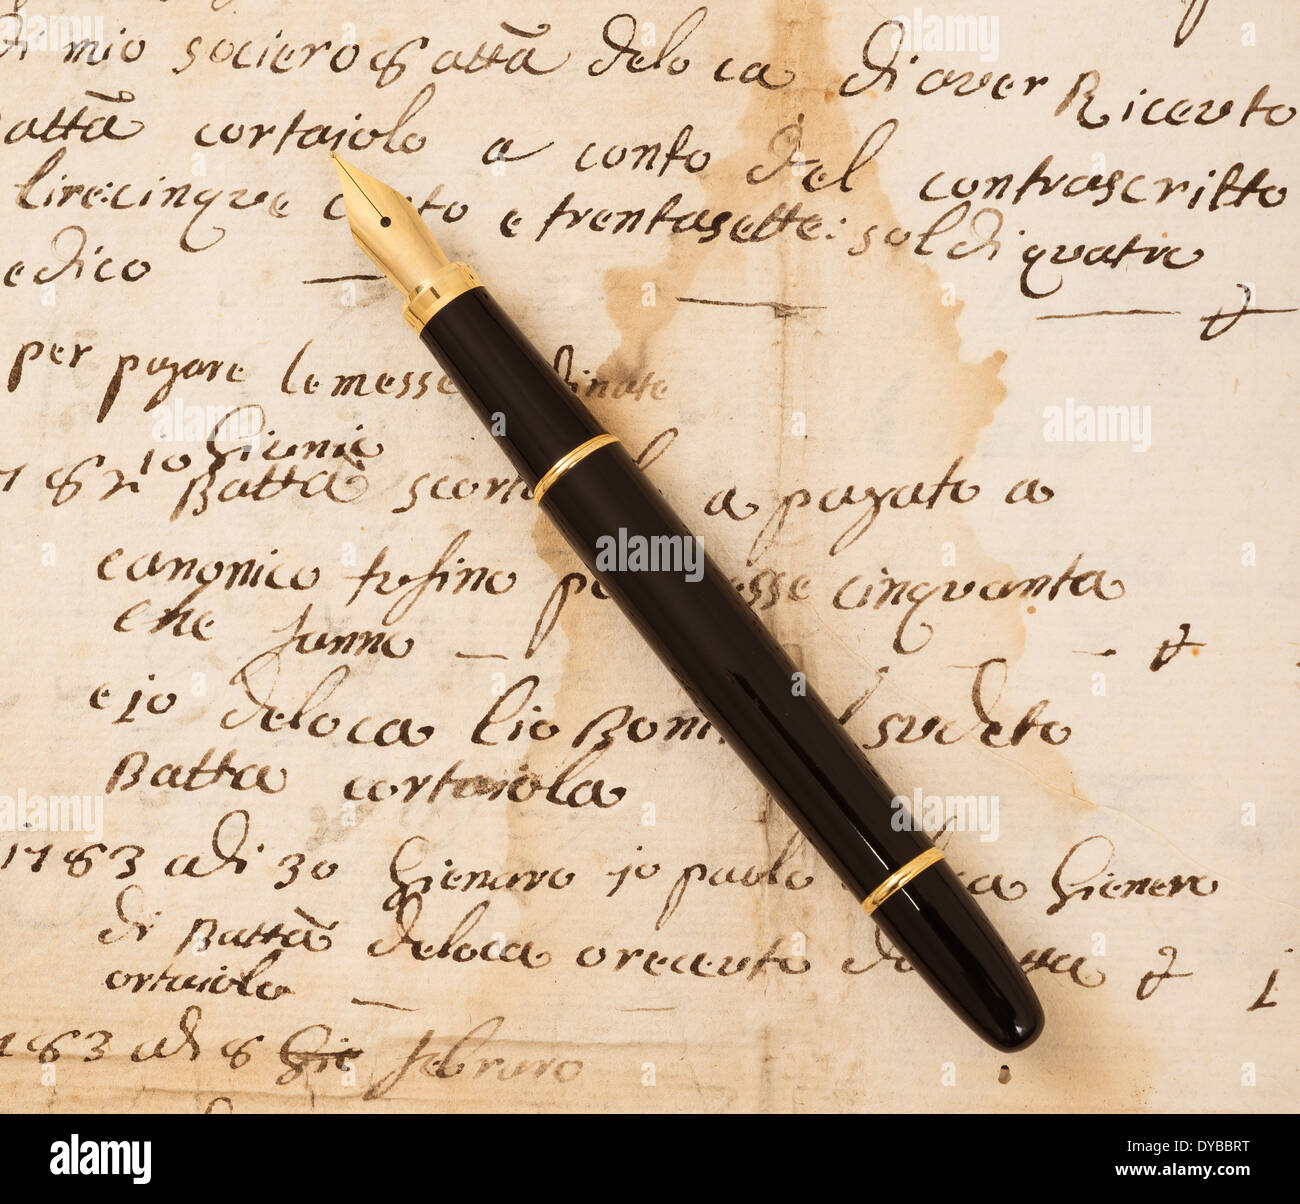 di mio sociero Battã deloca di aver Ricevto
Battã cortaiolo a conto del contrascritto
lire: cinqve e trentasette: soldi qvatro
e dico
per pagare le messe
10 Givnio
Battã a pagato a
canonico rvfino messe cinqvanta
che
e io deloca svdeto
Batta cortaiola
1783 adi 30 Gienaro io paolo Gienero
di Battã deloca o recevto
ortaiolo
1783 adi 8 Gie febraro
alamy
Image ID: DYBBRT
www.alamy.com